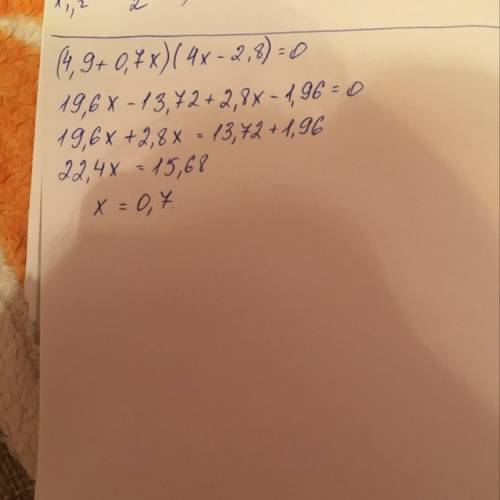 x₁,₂ 2
(4,9+0,7x)(4x-2,8)=0
19,6x-13,72+2,8x-1,96=0
19,6x+2,8x=13,72+1,96
22,4x=15,68
x=0,7.